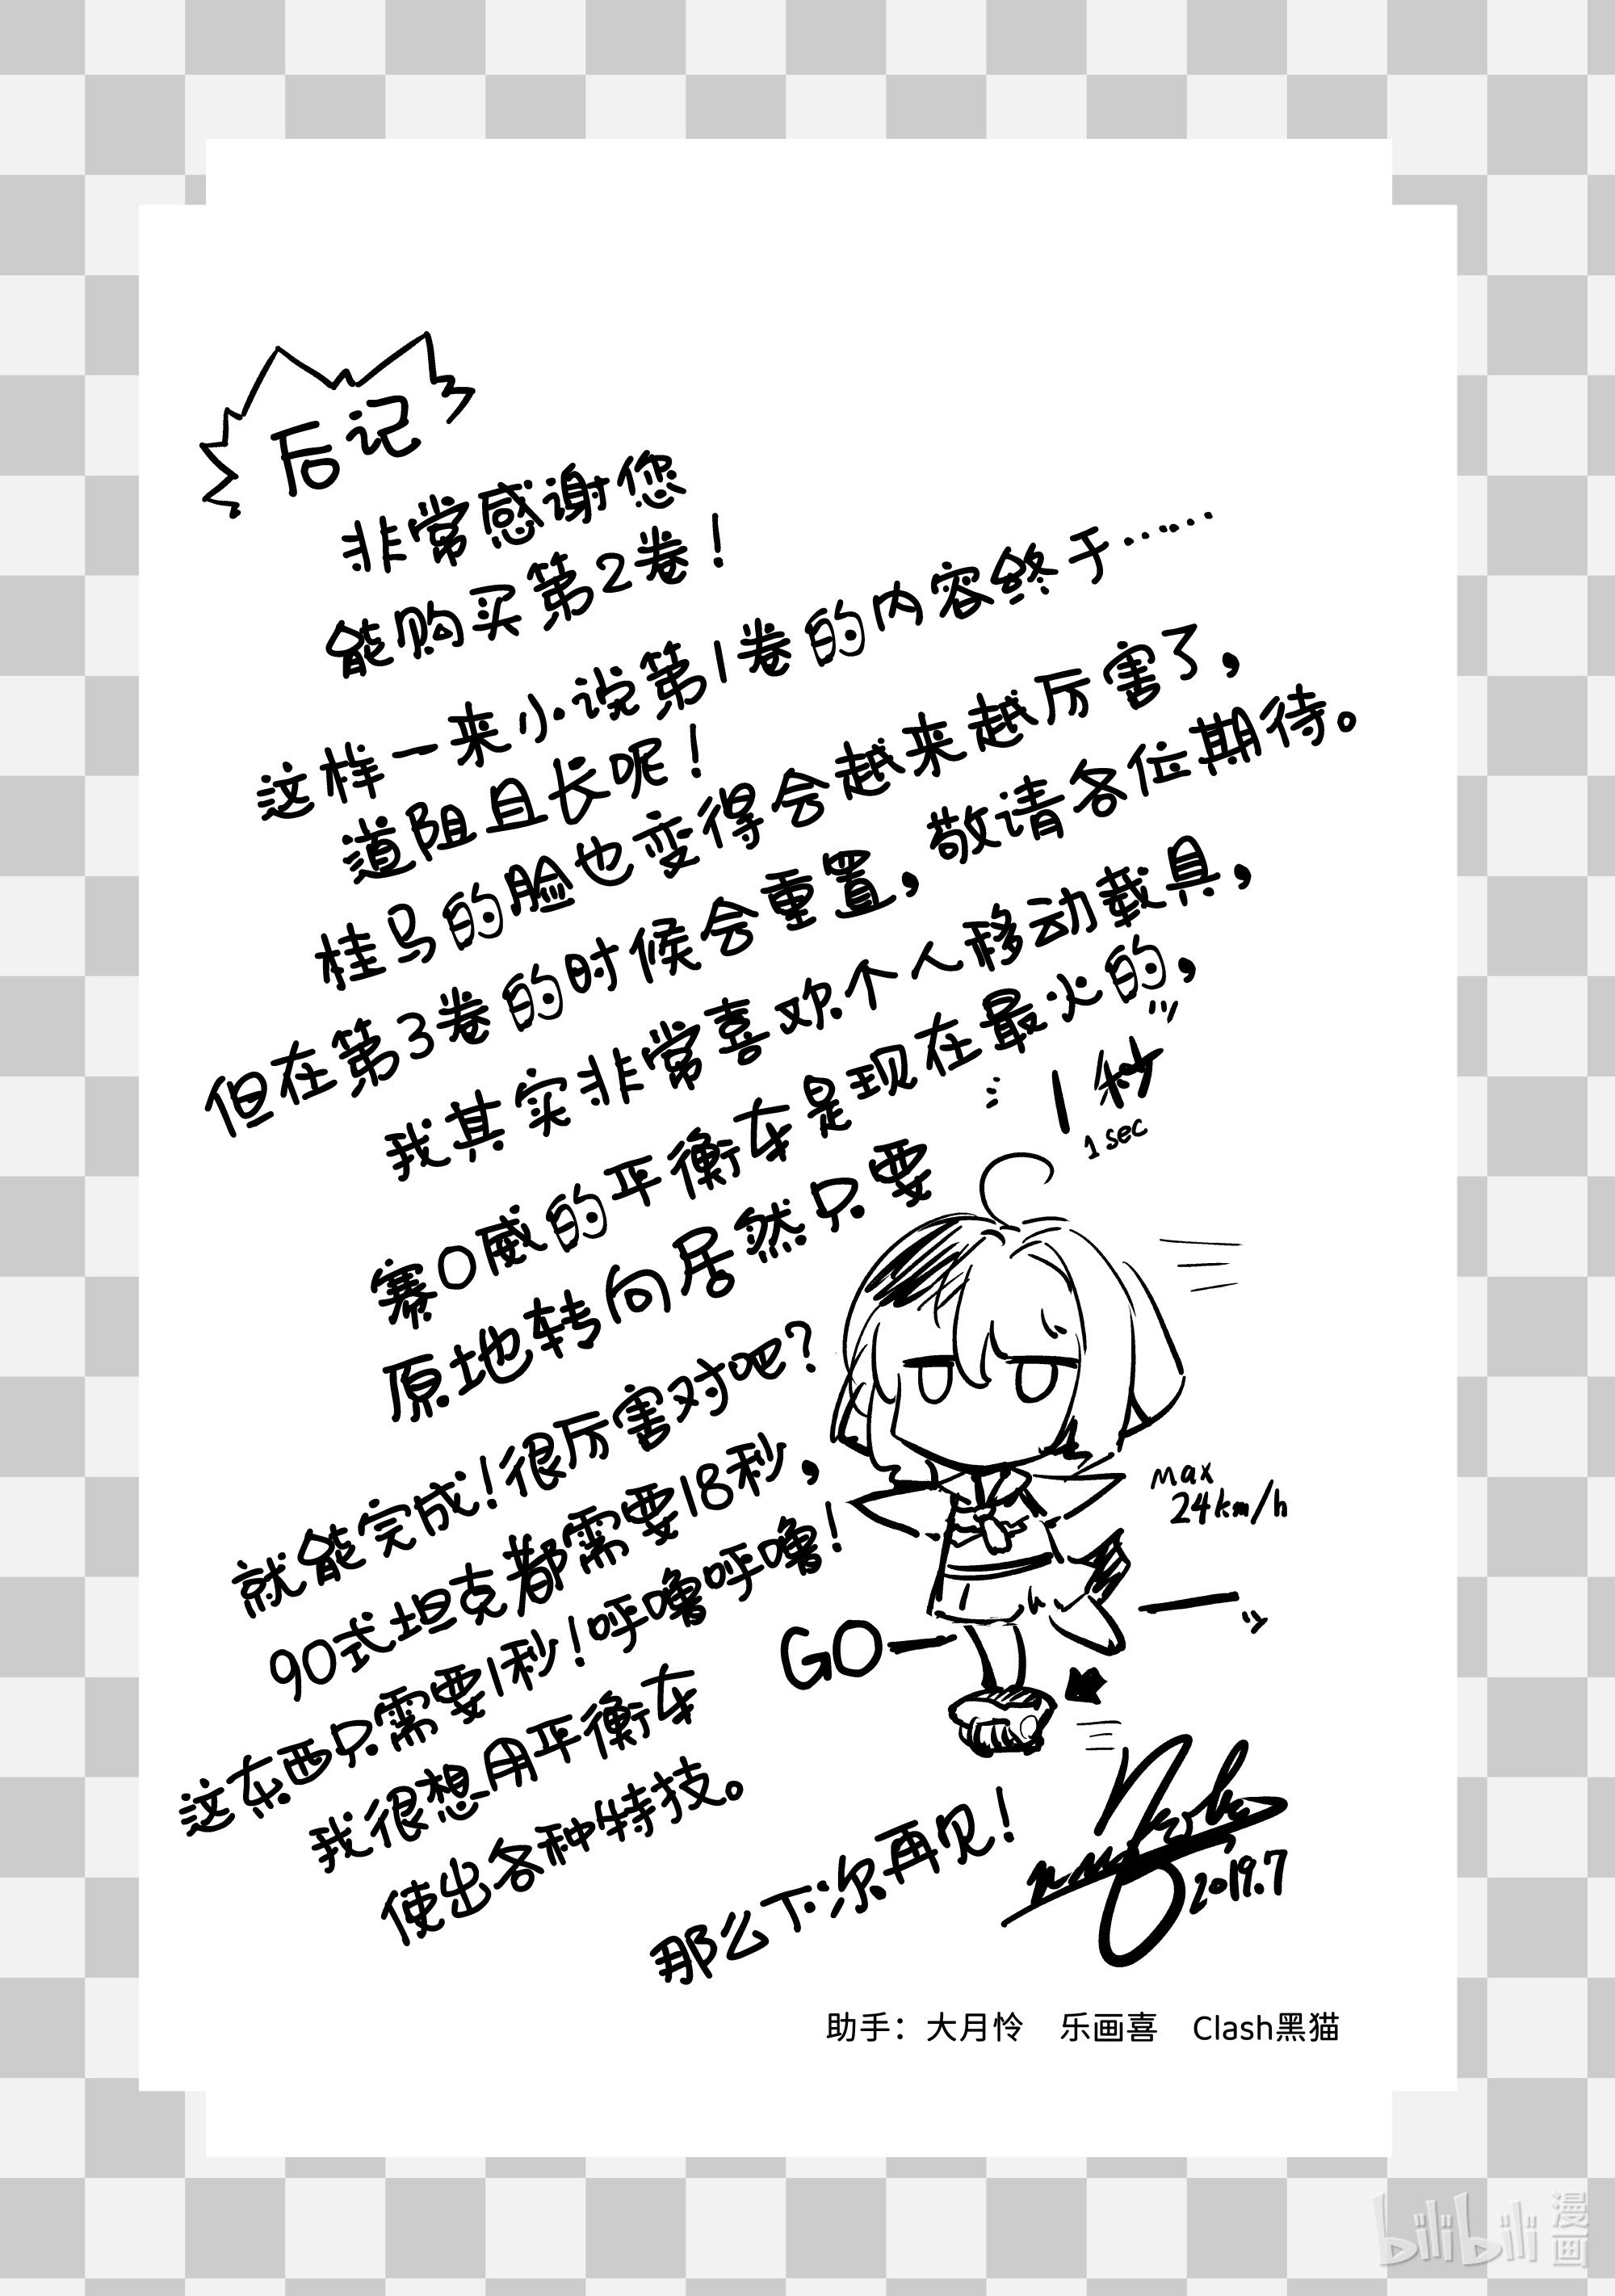 后记
非常感谢您
能购买第2卷！
这样一来小说第1卷的内容终于……
道阻且长呢！
桂马的脸也变得会越来越厉害了，
但在第3卷的时候会重置，敬请各位期待。
我其实非常喜欢个人移动载具，
赛O威的平衡车是现在最火的，
原地转向居然只要
1秒
1 sec
就能完成！很厉害对吧？
90式坦克都需要18秒，
这东西只需要1秒！呼噜呼噜！
我很想用平衡车
使出各种特技。
max
24km/h
GO一
那么下次再见！
2019.7
助手：大月怜 乐画喜 Clash黑猫
bilibili漫画